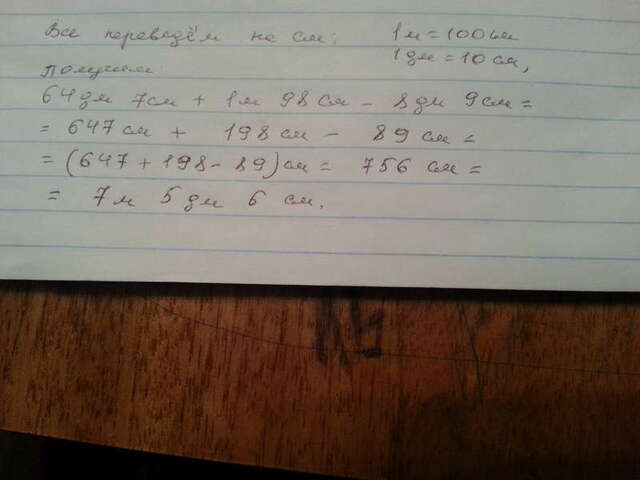 Все переведём на см: 1м = 100см
1дм = 10см,
Получим
64дм 7см + 1м 98см - 8дм 9см =
= 647см + 198см - 89см =
= (647 + 198 - 89)см = 756 см =
= 7м 5дм 6см.